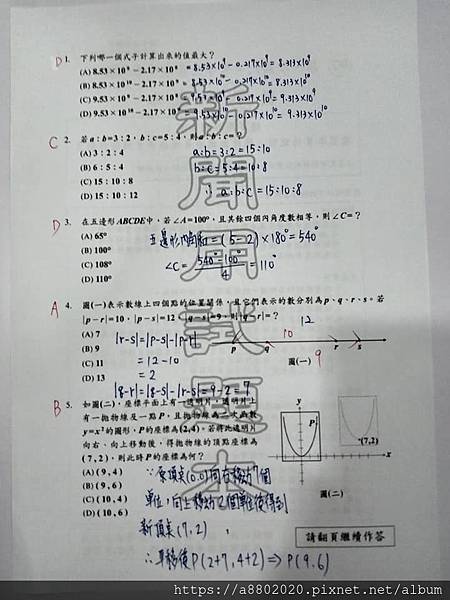 D 1. 下列哪一個式子計算出來的值最大?
(A) 8.53×10⁹－2.17×10⁸ = 8.53×10⁹－0.217×10⁹ = 8.313×10⁹
(B) 8.53×10¹⁰－2.17×10⁹ = 8.53×10¹⁰－0.217×10¹⁰ = 8.313×10¹⁰
(C) 9.53×10⁹－2.17×10⁸ = 9.53×10⁹－0.217×10⁹ = 9.313×10⁹
(D) 9.53×10¹⁰－2.17×10⁹ = 9.53×10¹⁰－0.217×10¹⁰ = 9.313×10¹⁰
C 2. 若a:b=3:2，b:c=5:4，則a:b:c=?
(A) 3:2:4 a:b=3:2=15:10
(B) 6:5:4 b:c=5:4=10:8
(C) 15:10:8 ∴ a:b:c=15:10:8
(D) 15:10:12
D 3. 在五邊形ABCDE中，若∠A=100°，且其餘四個內角度數相等，則∠C=?
(A) 65° 五邊形內角和=(5-2)×180°=540°
(B) 100°
(C) 108° ∠C= 540°-100° / 4 = 110°
(D) 110°
A 4. 圖(一)表示數線上四個點的位置關係，且它們表示的數分別為p、q、r、s。若
|p-r|=10，|p-s|=12，|q-s|=9，則|q-r|=?
(A) 7 |r-s|=|p-s|-|p-r|
(B) 9
(C) 11 =12-10
(D) 13 =2
|q-r|=|q-s|-|r-s|=9-2=7
12
10
p q r s
圖(一)
9
B 5. 如圖(二)，座標平面上有一透明片，透明片上
有一拋物線及一點P，且拋物線為二次函數
y=x²的圖形，P的座標為(2,4)。若將此透明片
向右、向上移動後，得拋物線的頂點座標為
(7,2)，則此時P的座標為何?
(A) (9,4) ∵原頂點(0,0)向右移動7個
(B) (9,6)
(C) (10,4) 單位,向上移動2個單位後得到
(D) (10,6) 新頂點(7,2)
∴平移後P(2+7,4+2)⇒P(9,6)
y
P
(7,2)
x
圖(二)
請翻頁繼續作答
新聞局試題本
https://a8802020.pixnet.net/album